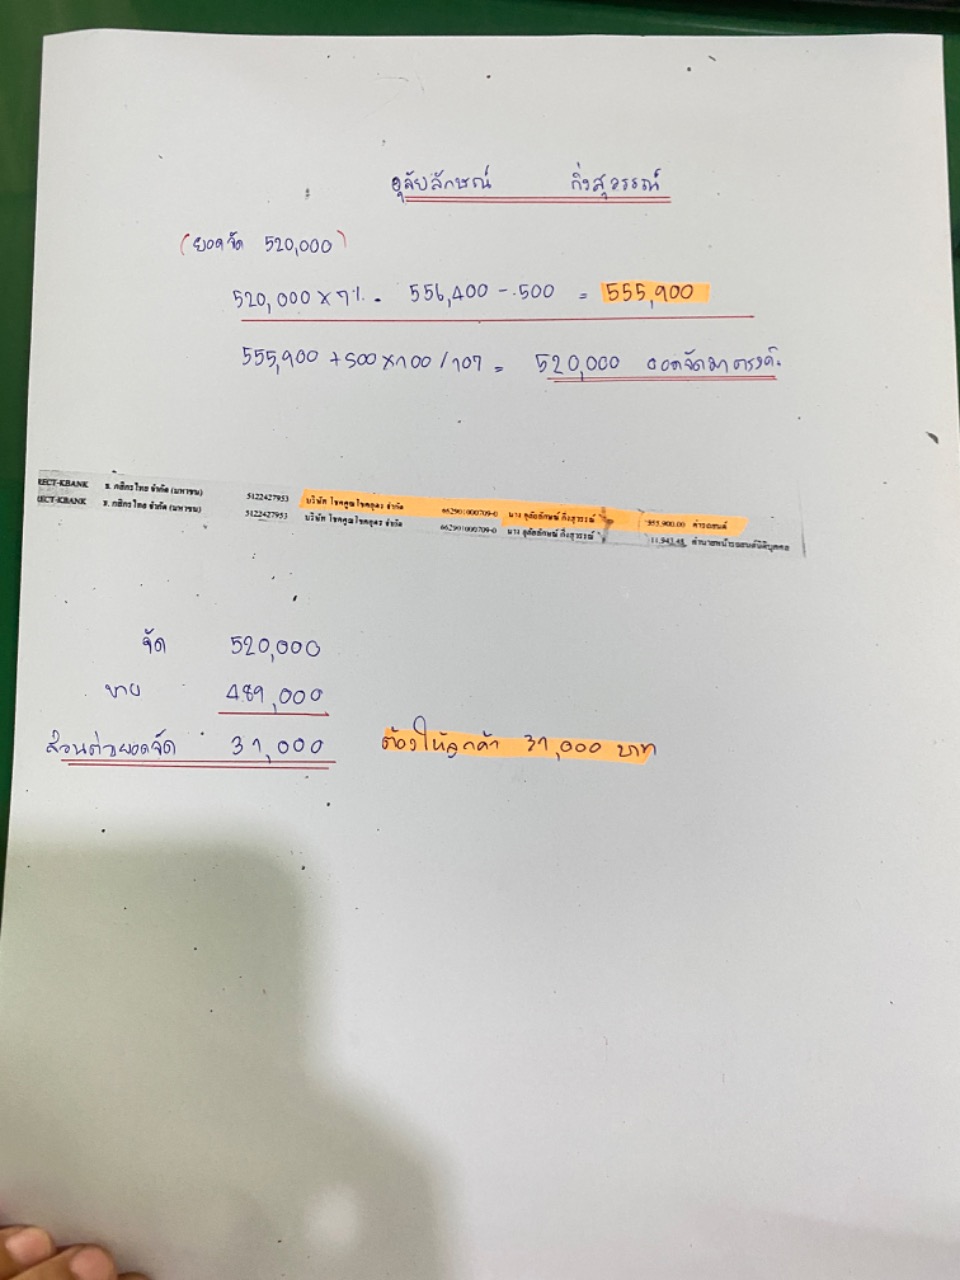 อุลัยลักษณ์ กิ่งสุวรรณ์
(ยอดจัด 520,000)
520,000 x 7% = 556,400 - 500 = 555,900
555,900 + 500 x 100 / 107 = 520,000 ยอดจัดมาตรงค่ะ
RECT-KBANK ธ. กสิกรไทย จำกัด (มหาชน) 5122427953 บริษัท โชคคูณโชคอุดร จำกัด 662901000709-0 นาง อุลัยลักษณ์ กิ่งสุวรรณ์ 555,900.00 ค่ารถยนต์
RECT-KBANK ธ. กสิกรไทย จำกัด (มหาชน) 5122427953 บริษัท โชคคูณโชคอุดร จำกัด 662901000709-0 นาง อุลัยลักษณ์ กิ่งสุวรรณ์ 11,943.48 ค่านายหน้ารถยนต์นิติบุคคล
จัด 520,000
ขาย 489,000
ส่วนต่างยอดจัด 31,000 ต้องให้ลูกค้า 31,000 บาท